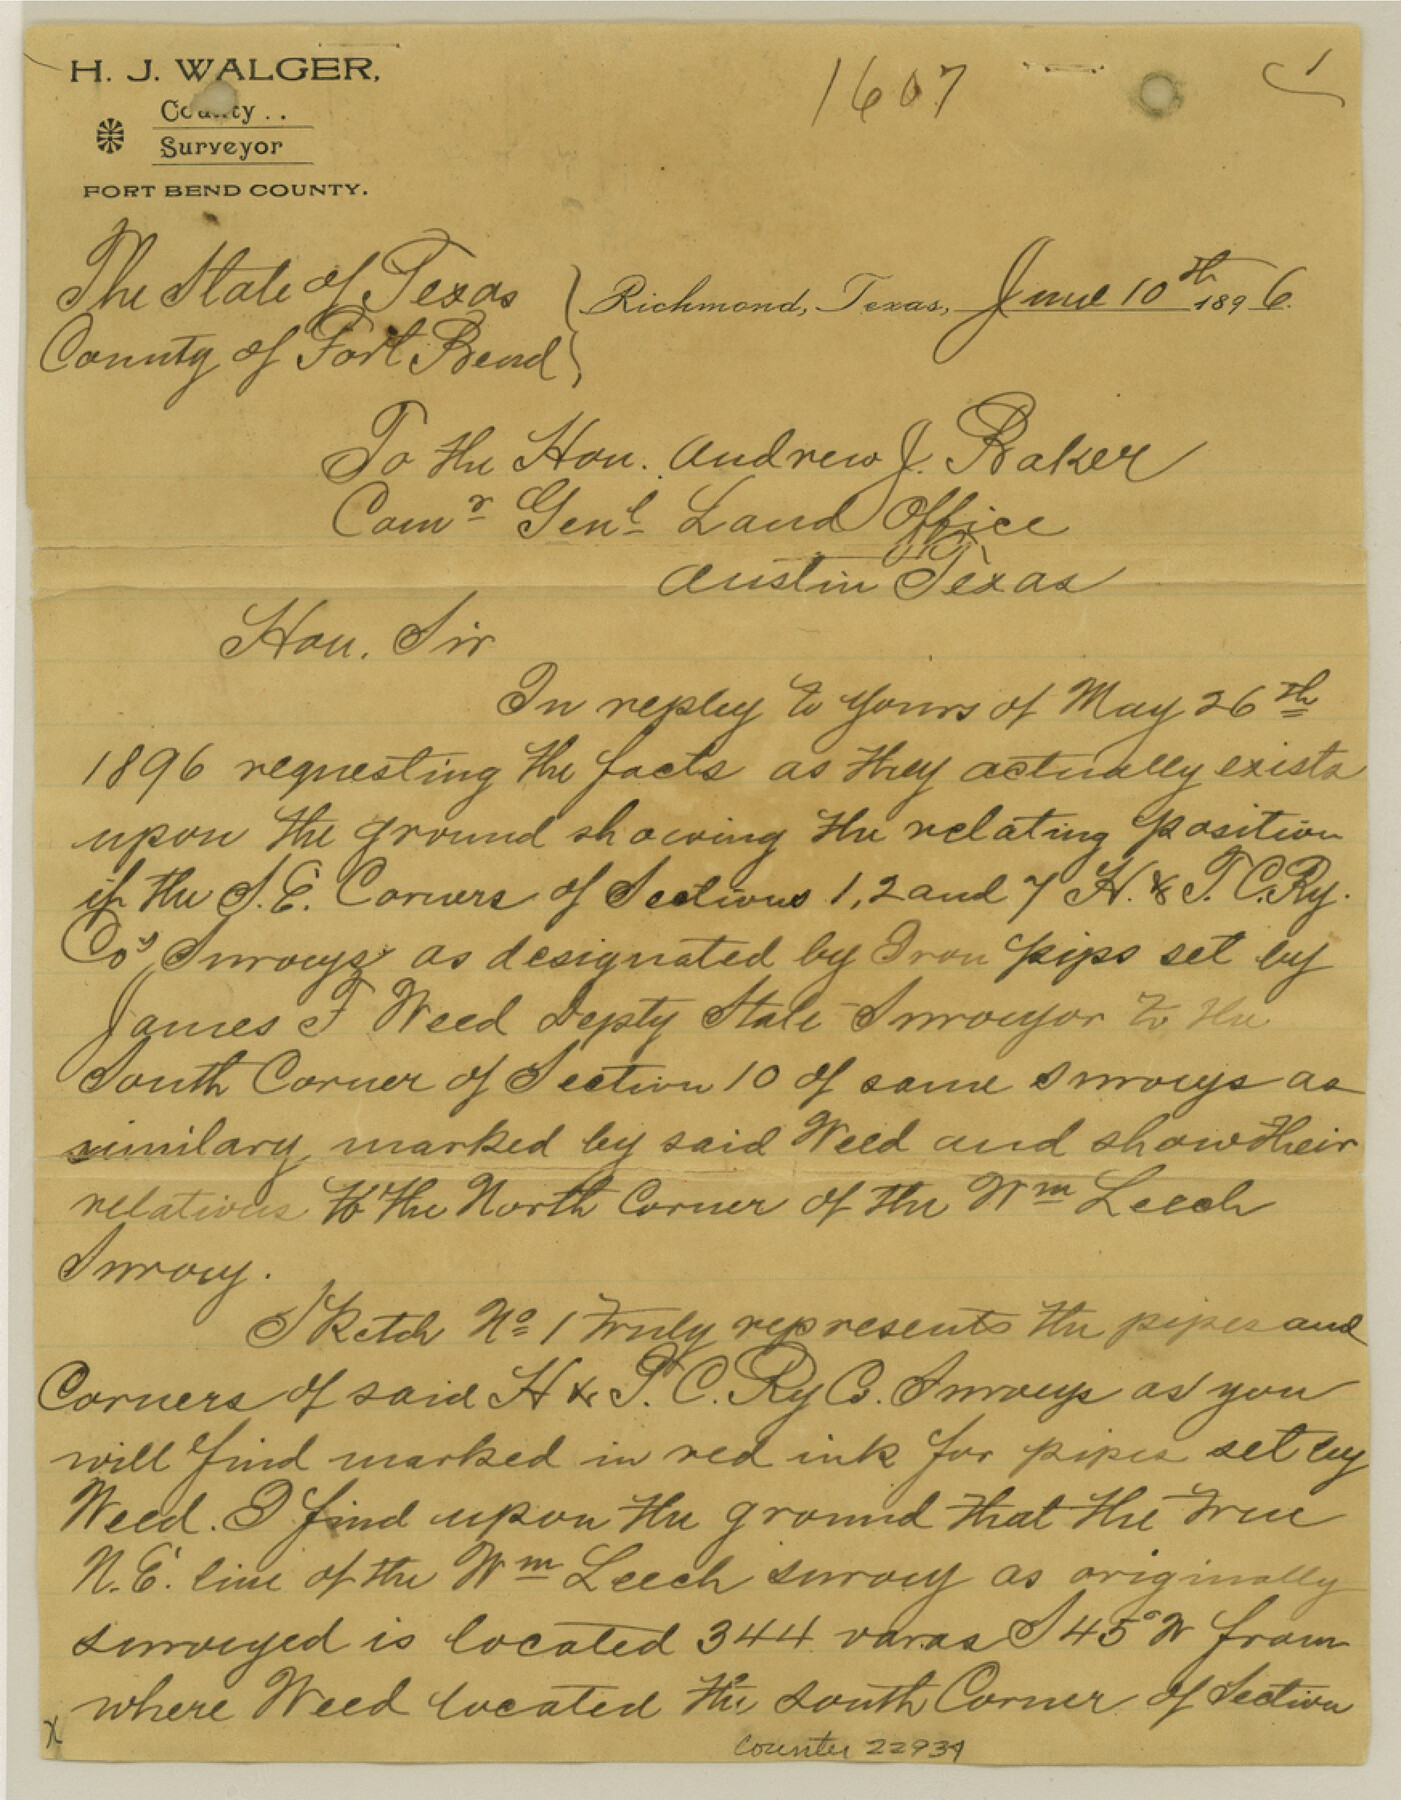 H. J. WALGER,
County . .
Surveyor
FORT BEND COUNTY.
1607
1
The State of Texas
County of Fort Bend
Richmond, Texas, June 10th 1896.
To the Hon. Andrew J. Baker
Comr Genl Land Office
Austin Texas
Hon. Sir
In reply to yours of May 26th
1896 requesting the facts as they actually exists
upon the ground showing the relating position
if the S.E. Corners of Sections 1, 2 and 7 H. & T. C. Ry.
Cos Surveys as designated by Iron pips set by
James F Weed Depty State Surveyor to the
South Corner of Section 10 of same surveys as
similary marked by said Weed and show their
relations to the North Corner of the Wm Leech
Survey.
Sketch No 1 truly represents the pipes and
Corners of said H & T. C. Ry Co. Surveys as you
will find marked in red ink for pipes set by
Weed. I find upon the ground that the true
N.E. line of the Wm Leech survey as originally
surveyed is located 344 varas S 45° W from
where Weed located the South Corner of Section
x
counter 22934